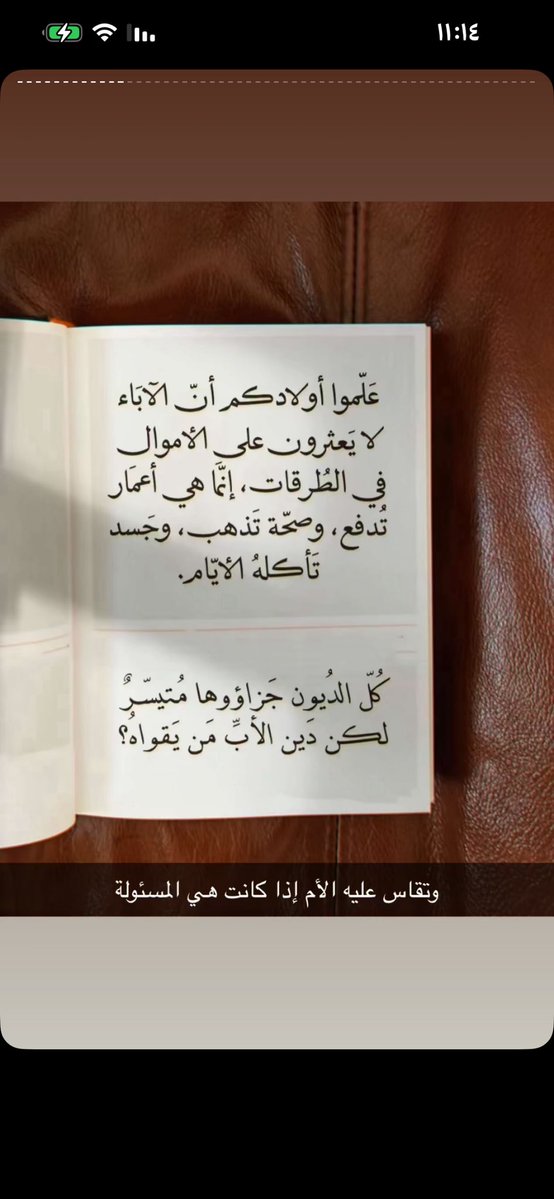 ١١:١٤
عَلّموا أولادكم أنّ الآبَاء
لا يَعثرون على الأموال
في الطُرقات، إنَّما هي أعمَار
تُدفع، وصحّة تَذهب، وجَسد
تَأكلهُ الأيّام.
كُلّ الدُيون جَزاؤوها مُتيسّرٌ
لكن دَين الأبِّ مَن يَقواهُ؟
وتقاس عليه الأم إذا كانت هي المسئولة